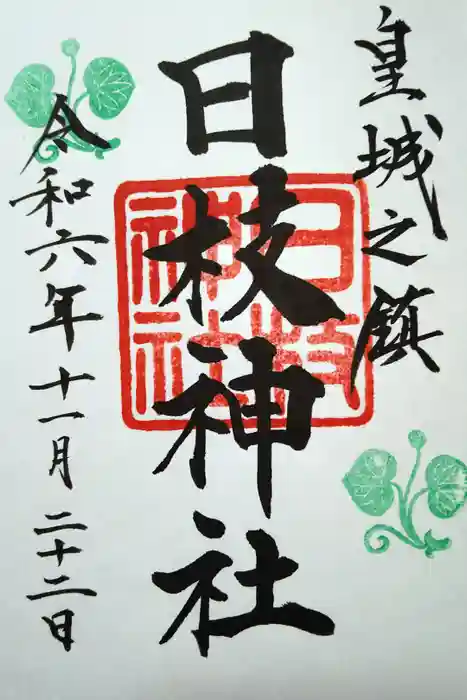 皇城之鎮
日枝神社
令和六年十一月二十二日